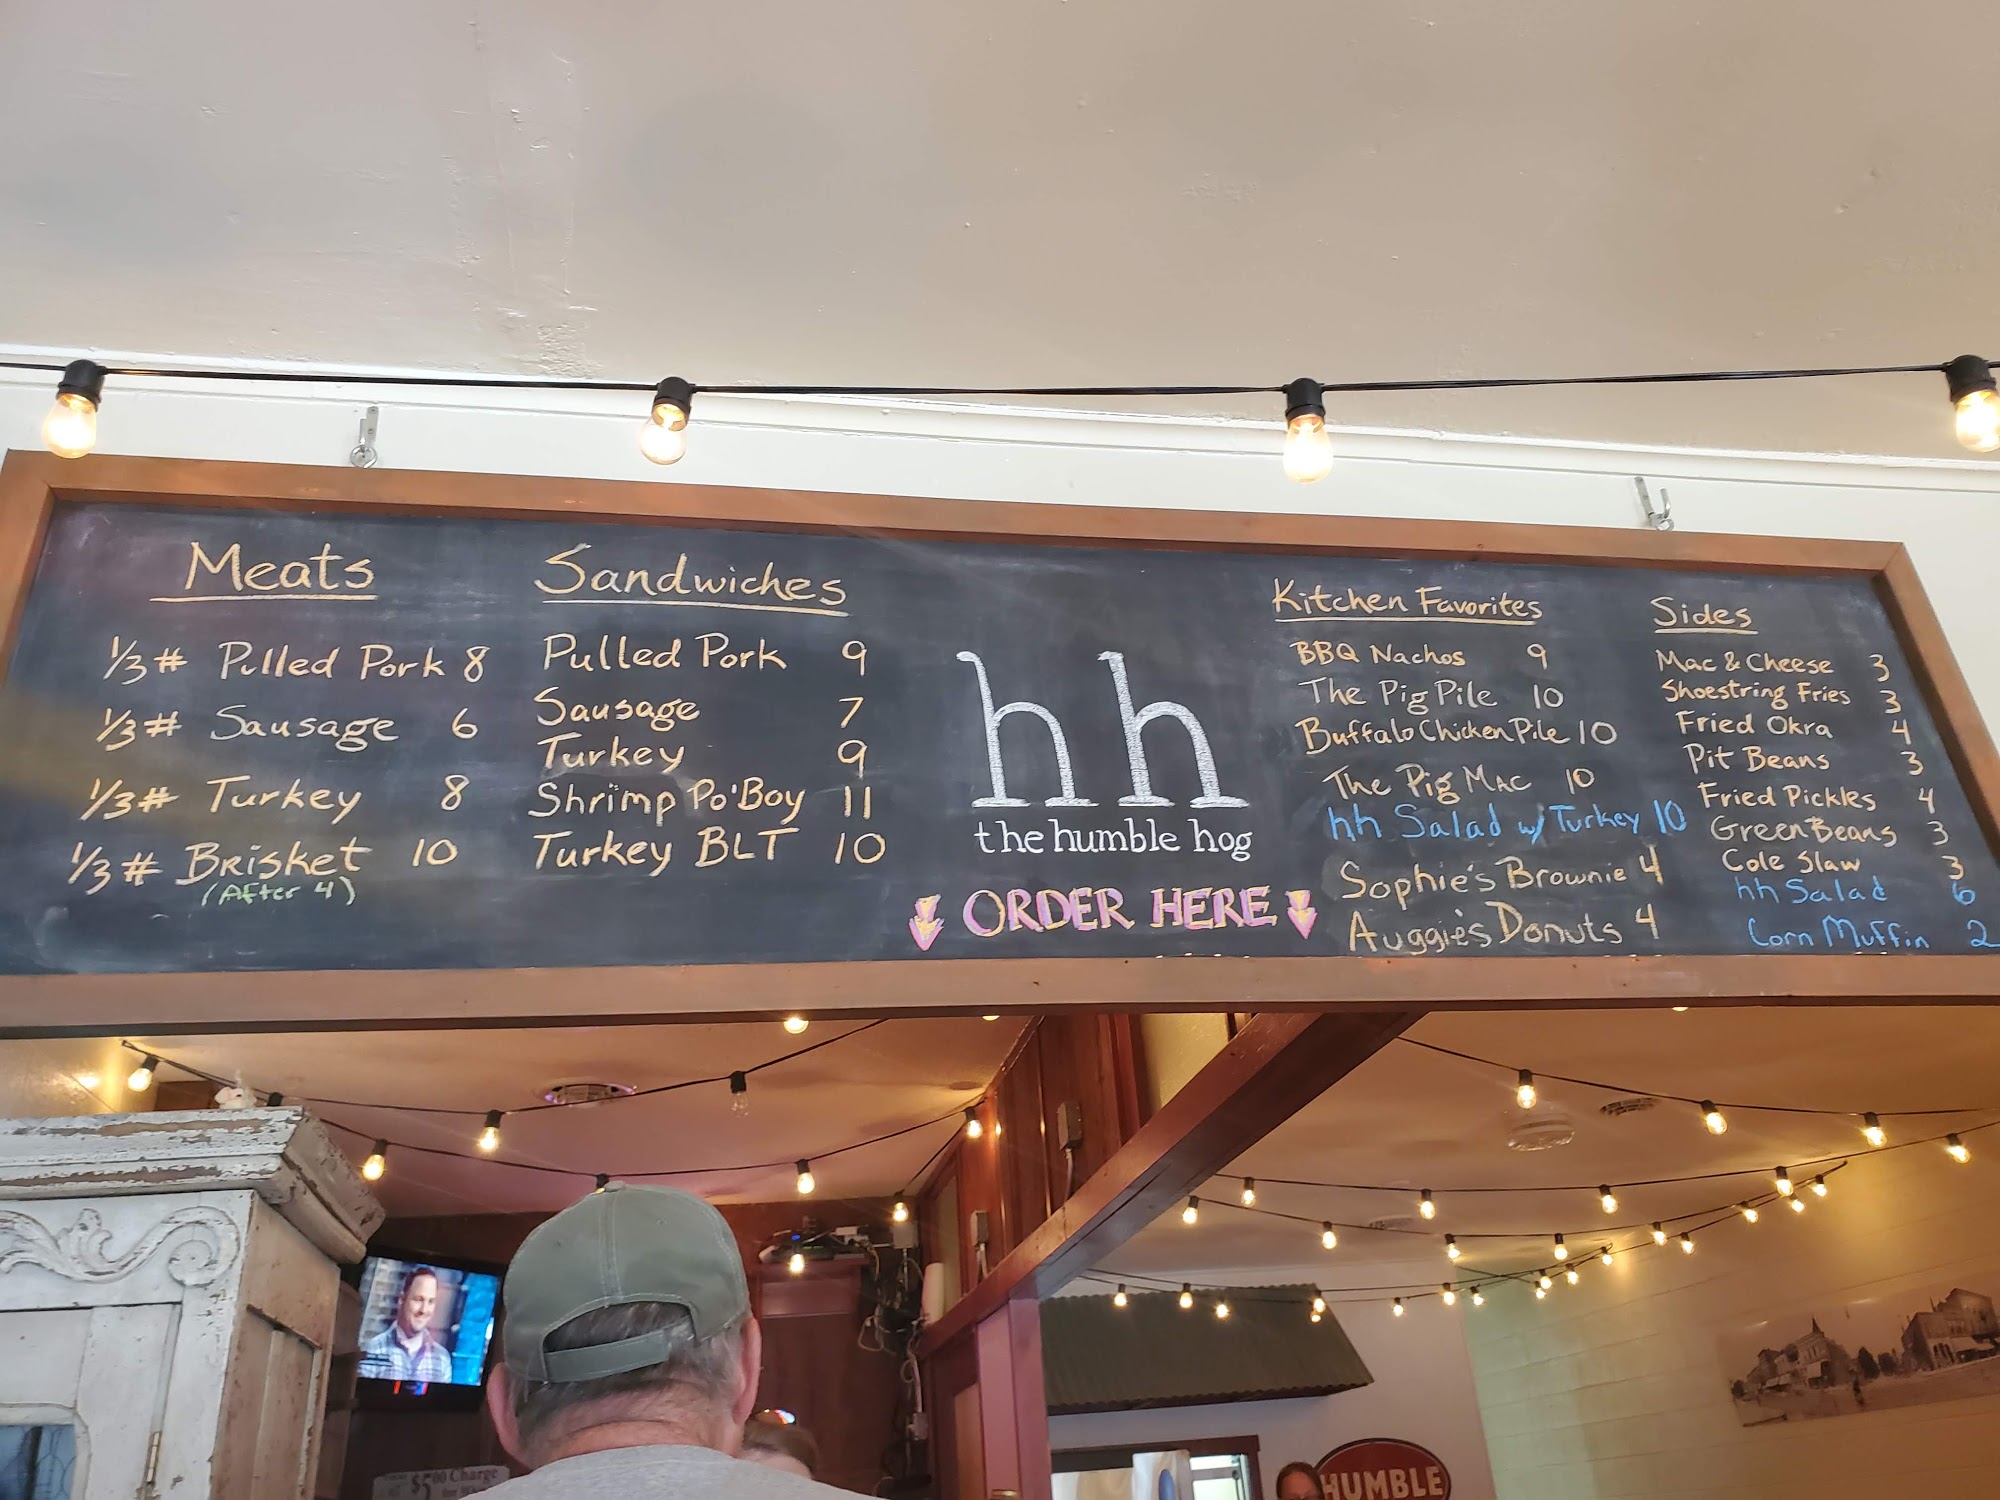 Meats
1/3# Pulled Pork 8
1/3# Sausage 6
1/3# Turkey 8
1/3# Brisket 10
(After 4)
Sandwiches
Pulled Pork 9
Sausage 7
Turkey 9
Shrimp Po'Boy 11
Turkey BLT 10
hh
the humble hog
ORDER HERE
Kitchen Favorites
BBQ Nachos 9
The Pig Pile 10
Buffalo Chicken Pile 10
The Pig Mac 10
hh Salad w/ Turkey 10
Sophie's Brownie 4
Auggie's Donuts 4
Sides
Mac & Cheese 3
Shoestring Fries 3
Fried Okra 4
Pit Beans 3
Fried Pickles 4
Green Beans 3
Cole Slaw 3
hh Salad 6
Corn Muffin 2
$5.00 Charge
HUMBLE